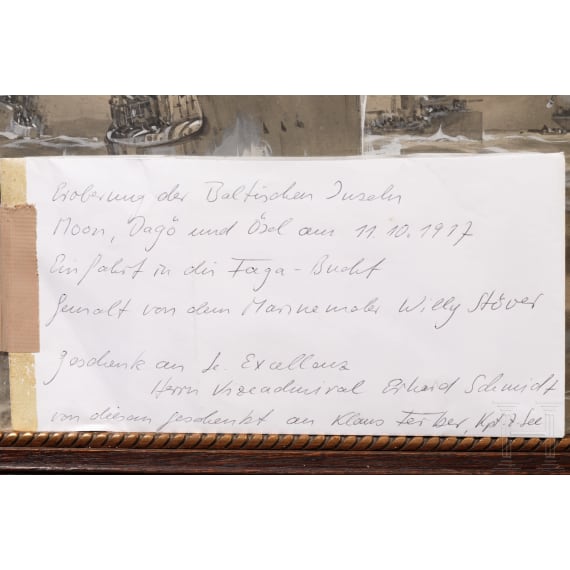 Eroberung der Baltischen Inseln
Moon, Dagö und Ösel am 11.10.1917
Einfahrt in die Taga-Bucht
Gemalt von dem Marinemaler Willy Stöver
Geschenk an Se. Excellenz
Herrn Vizeadmiral Erhard Schmidt
von diesem geschenkt an Klaus Ferber, Kpt. z See